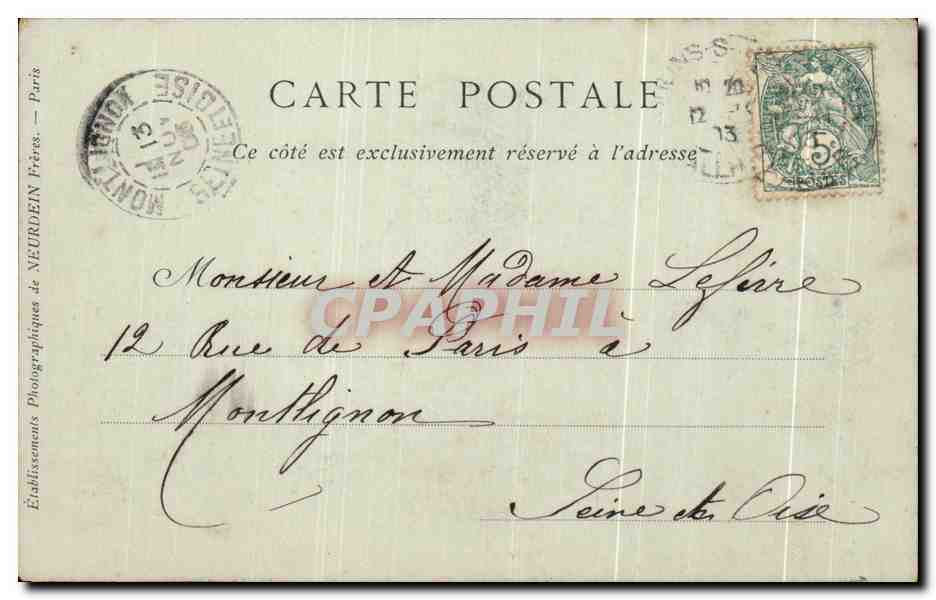 CARTE POSTALE
Ce côté est exclusivement réservé à l'adresse
Établissements Photographiques de NEURDEIN Frères. — Paris
MONTLIGNON SEINE-ET-OISE
13
NOV
5c
POSTES
12
13
Monsieur et Madame Lefèvre
12 Rue de Paris à
Montlignon
Seine et Oise
CPAPHIL